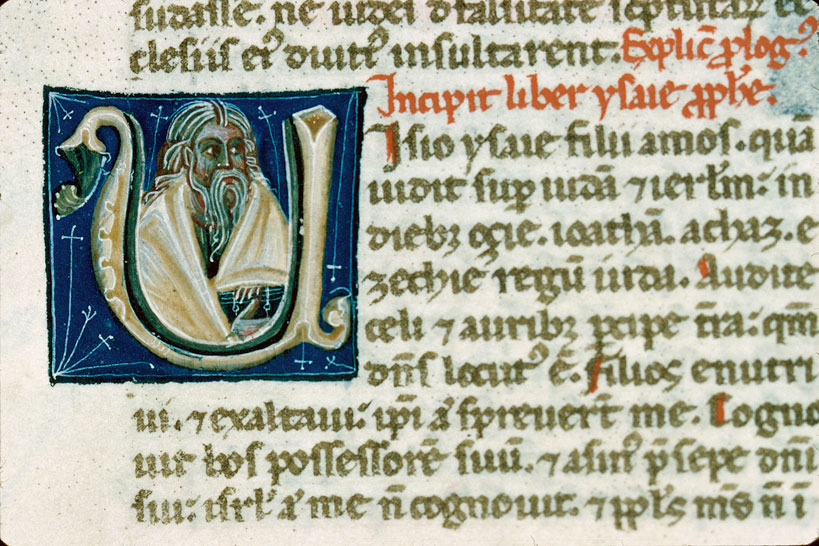 sudasse. ne iudei d falsitate scpturaꝝ ec
clesiis eiꝰ diutiꝰ insultarent. Explic̄ ꝓlogꝰ.
Incipit liber ysaie ꝓph̄e.
Uisio ysaie filii amos. quā
uidit suꝑ iudā ⁊ ierl̄m: in
diebꝫ oçie. ioathā. achaz. e
zechie regū iuda. Audite
celi ⁊ auribꝫ ꝑcipe t̄ra: qm̄
dn̄s locutꝰ ē. Filios enutri
ui. ⁊ exaltaui: ip̄i aͥ sp̄reuer̄t me. Cogno
uit bos possessorē suū. ⁊ asinꝰ p̄sepe dn̄i
sui: isrl̓ aͥ me n̄ cognouit. ⁊ ppl̓s ms̄ n̄ ī